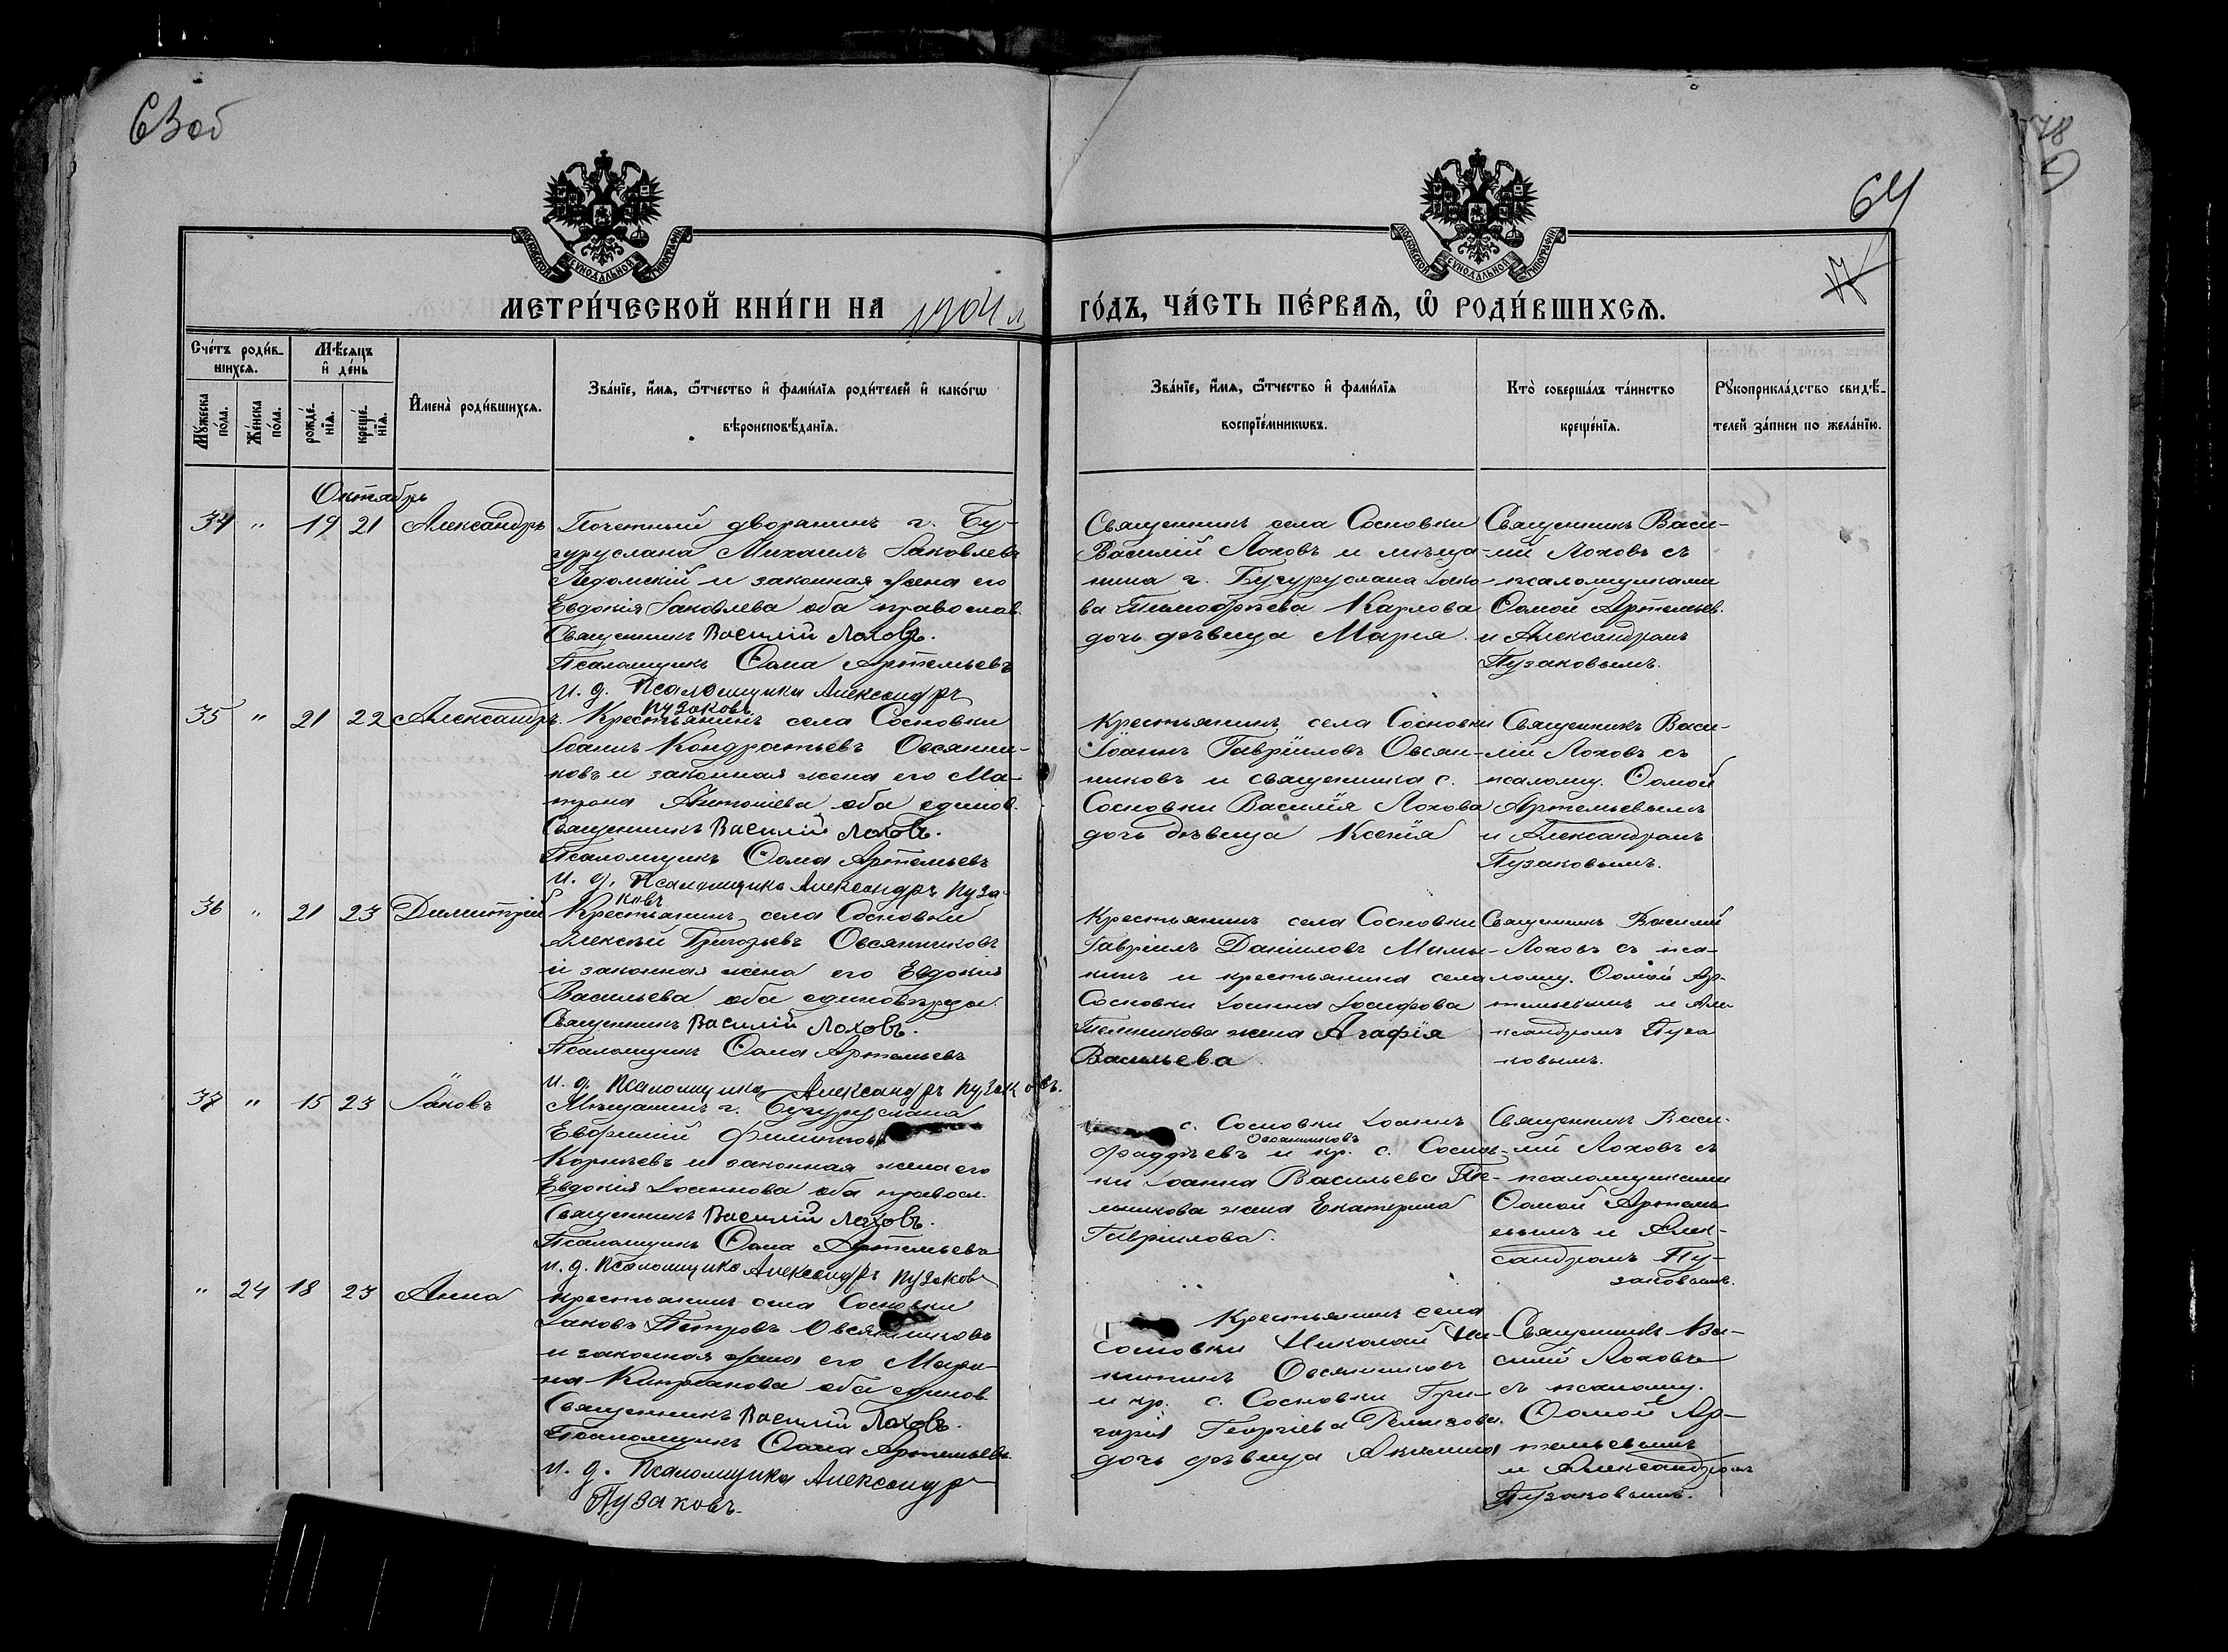 63 об
78
64
17
МОСКОВСКОЙ СУНОДАЛЬНОЙ ТИПОГРАФІИ
МОСКОВСКОЙ СУНОДАЛЬНОЙ ТИПОГРАФІИ
МЕТРИ́ЧЕСКОЙ КНИ́ГИ НА 1904 й
ГО́ДЪ, ЧА́СТЬ ПЕ́РВАѦ, Ѡ҆ РОДИ́ВШИХСѦ.
Сче́тъ роди́в-
шихсѧ.
Му́жеска по́ла.
Же́нска по́ла.
Мѣ́сѧцъ
и҆ де́нь
рожде́-
нїѧ.
креще́-
нїѧ.
И҆мена̀ роди́вшихсѧ.
Зва́нїе, и҆́мѧ, ѻ҆́тчество и҆ фами́лїѧ роди́телей и҆ како́гѡ
вѣроисповѣ́данїѧ.
Зва́нїе, и҆́мѧ, ѻ҆́тчество и҆ фами́лїѧ
воспрїе́мникѡвъ.
Кто̀ соверша́лъ та́инство
креще́нїѧ.
Рꙋкоприкла́дство свидѣ́-
телей за́писи по жела́нїю.
Октябрь
34 " 19 21 Александръ
Почетный дворянинъ г. Бу-
гуруслана Михаилъ Іаковлевъ
и законная жена его
Евдокія Іаковлева оба православ.
Священникъ Василій Лоховъ.
Псаломщикъ Ѳома Артемьевъ
И. д. Псаломщика Александръ
Пузаковъ.
Священникъ села Сосновки
Василій Лоховъ и мѣща-
нина г. Бугуруслана Іако-
ва Тимофѣева Карлова
дочь дѣвица Марія.
Священникъ Васи-
лій Лоховъ съ
псаломщиками
Ѳомой Артемьев.
и Александромъ
Пузаковымъ.
35 " 21 22 Александръ.
Крестьянинъ села Сосновки
Іоаннъ Кондратьевъ Овсянни-
ковъ и законная жена его Ма-
трона оба единов.
Священникъ Василій Лоховъ.
Псаломщикъ Ѳома Артемьевъ
И. д. Псаломщика Александръ Пуза-
ковъ
Крестьянинъ села Сосновки
Іоаннъ Гавріиловъ Овсян-
никовъ и священника с.
Сосновки Василія Лохова
дочь дѣвица Ксенія
Священникъ Васи-
лій Лоховъ съ
псаломщ. Ѳомой
Артемьевымъ
и Александромъ
Пузаковымъ.
36 " 21 23 Димитрій
Крестьянинъ села Сосновки
Алексѣй Григорьевъ Овсянниковъ
и законная жена его Евдокія
Васильева оба единовѣрцы.
Священникъ Василій Лоховъ.
Псаломщикъ Ѳома Артемьевъ
И. д. Псаломщика Александръ Пузаковъ.
Крестьянинъ села Сосновки
Гавріилъ Даниловъ Мамы-
кинъ и крестьянина села
Сосновки Іоанна Іосифова
жена Агафія
Васильева
Священникъ Василій
Лоховъ съ пса-
ломщ. Ѳомой Ар-
темьевымъ и Але-
ксандромъ Пуза
ковымъ.
37 " 15 23 Іаковъ
Мѣщанинъ г. Бугуруслана
Евфимій
Корнѣевъ и законная жена его
Евдокія Іоаннова оба правосл.
Священникъ Василій Лоховъ.
Псаломщикъ Ѳома Артемьевъ
И. д. Псаломщика Александръ Пузаковъ
с. Сосновки Іоаннъ
Овсянниковъ
Фаддѣевъ и кр. с. Соснов-
ки Іоанна Васильева Те-
льникова жена Екатерина
Гавріилова.
Священникъ Васи-
лій Лоховъ съ
псаломщиками
Ѳомой Артемь-
евымъ и Алек-
сандромъ Пу-
заковымъ.
" 24 18 23 Анна
Крестьянинъ села Сосновки
Іаковъ Петровъ Овсянниковъ
и законная жена его Мари-
на Кипріанова оба единов
Священникъ Василій Лоховъ.
Псаломщикъ Ѳома Артемьевъ
И. д. Псаломщика Александръ
Пузаковъ.
Крестьянинъ села
Сосновки Николай Ни-
китинъ Овсянниковъ
и кр. с. Сосновки Гри-
горія Георгіева
дочь дѣвица Акилина
Священникъ Ва-
силій Лоховъ
съ псаломщ.
Ѳомой Ар-
темьевымъ
и Александромъ
Пузаковымъ.